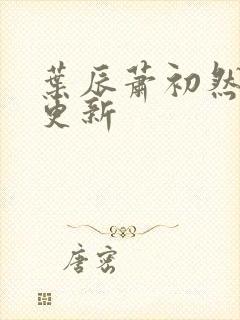 葉辰蕭初然
更新
唐密